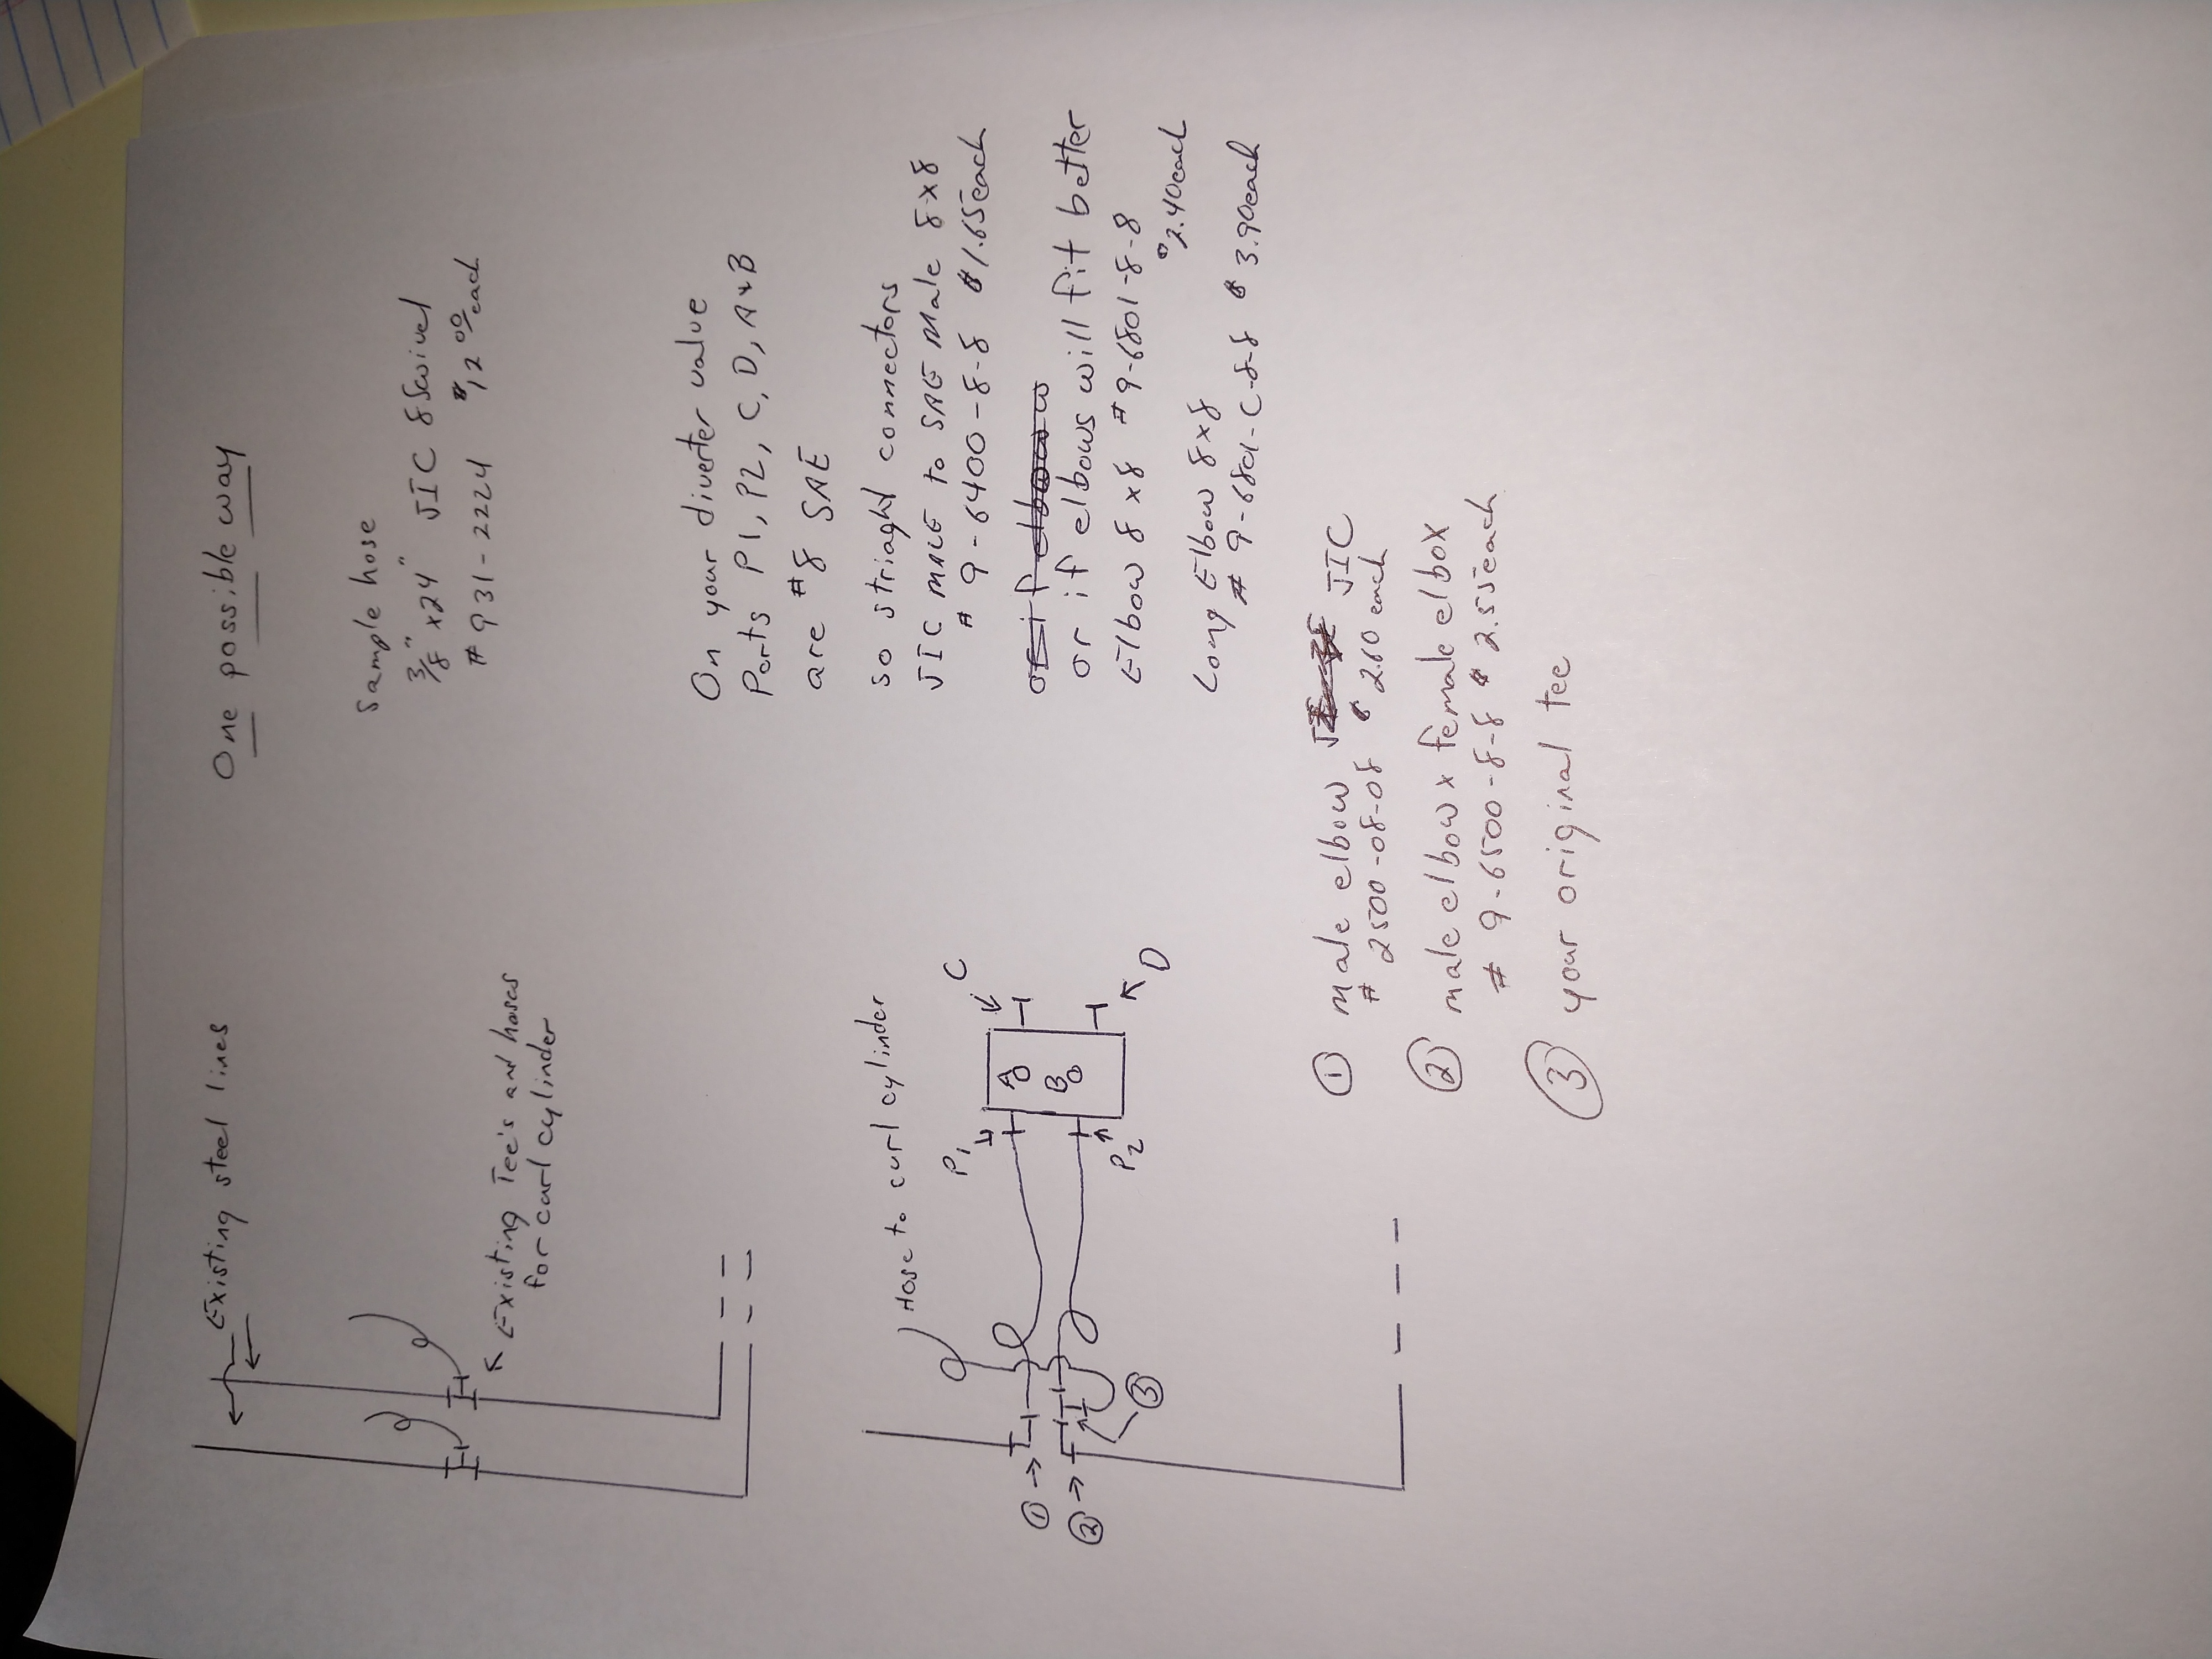 One possible way
Existing steel lines
Sample hose
3/8" x24" JIC 8 Swivel
# 931-2224 $12 00/each
Existing Tee's and hoses
for curl cylinder
On your diverter valve
Ports P1, P2, C, D, A & B
are #8 SAE
so striaght connectors
JIC male to SAE male 8x8
# 9-6400-8-8 $1.65each
or if elbows will fit better
Elbow 8x8 # 9-6801-8-8
$2.40each
Long Elbow 8x8
# 9-6801-C-8-8 $3.90each
Hose to curl cylinder
P1
C
A
B
P2
D
1
2
3
1 male elbow JIC
# 2500-08-08 $2.60 each
2 male elbow x female elbox
# 9-6500-8-8 $2.55each
3 your original tee